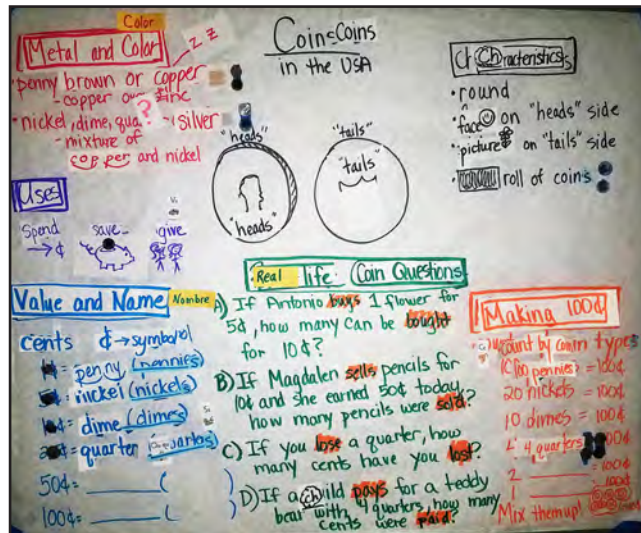 Color
Metal and Color
Zz
• penny brown or copper
- copper over zinc
• nickel, dime, quarter silver
?
- mixture of
copper and nickel
Coins Coins
in the USA
"heads"
"heads"
"tails"
"tails"
Characteristics
• round
• face on "heads" side
• picture on "tails" side
• roll of coins
Uses
Spend
→ ¢
save
give
Value and Name
Nombre
cents ¢ → symbol
= penny (pennies)
= nickel (nickels)
= dime (dimes)
= quarter (quarters)
50¢ = ______ ( )
100¢ = ______ ( )
Real life: Coin Questions
A) If Antonio buys 1 flower for
5¢, how many can be bought
for 10¢?
B) If Magdalen sells pencils for
10¢ and she earned 50¢ today,
how many pencils were sold?
C) If you lose a quarter, how
many cents have you lost?
D) If a child pays for a teddy
bear with 4 quarters, how many
cents were paid?
Making 100¢
count by coin types
100 pennies = 100¢
20 nickels = 100¢
10 dimes = 100¢
4 quarters = 100¢
2 ______ = 100¢
1 ______ = 100¢
Mix them up!